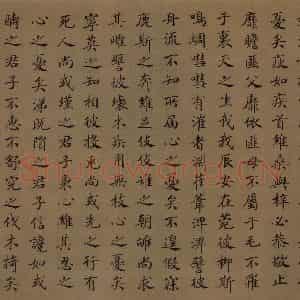 憂矣疢如疾首維桑與梓必恭敬止
靡瞻匪父靡依匪母不屬于毛不罹
于裏天之生我我辰安在菀彼柳斯
鳴蜩嘒嘒有漼者淵萑葦淠淠譬彼
舟流不知所屆心之憂矣不遑假寐
鹿斯之奔維足伎伎雉之朝雊尚求
其雌譬彼壞木疾用無枝心之憂矣
寧莫之知相彼投兔尚或先之行有
死人尚或墐之君子秉心維其忍之
心之憂矣涕既隕之君子信讒如或
醻之君子不惠不舒究之伐木掎矣
Shufawang.cn